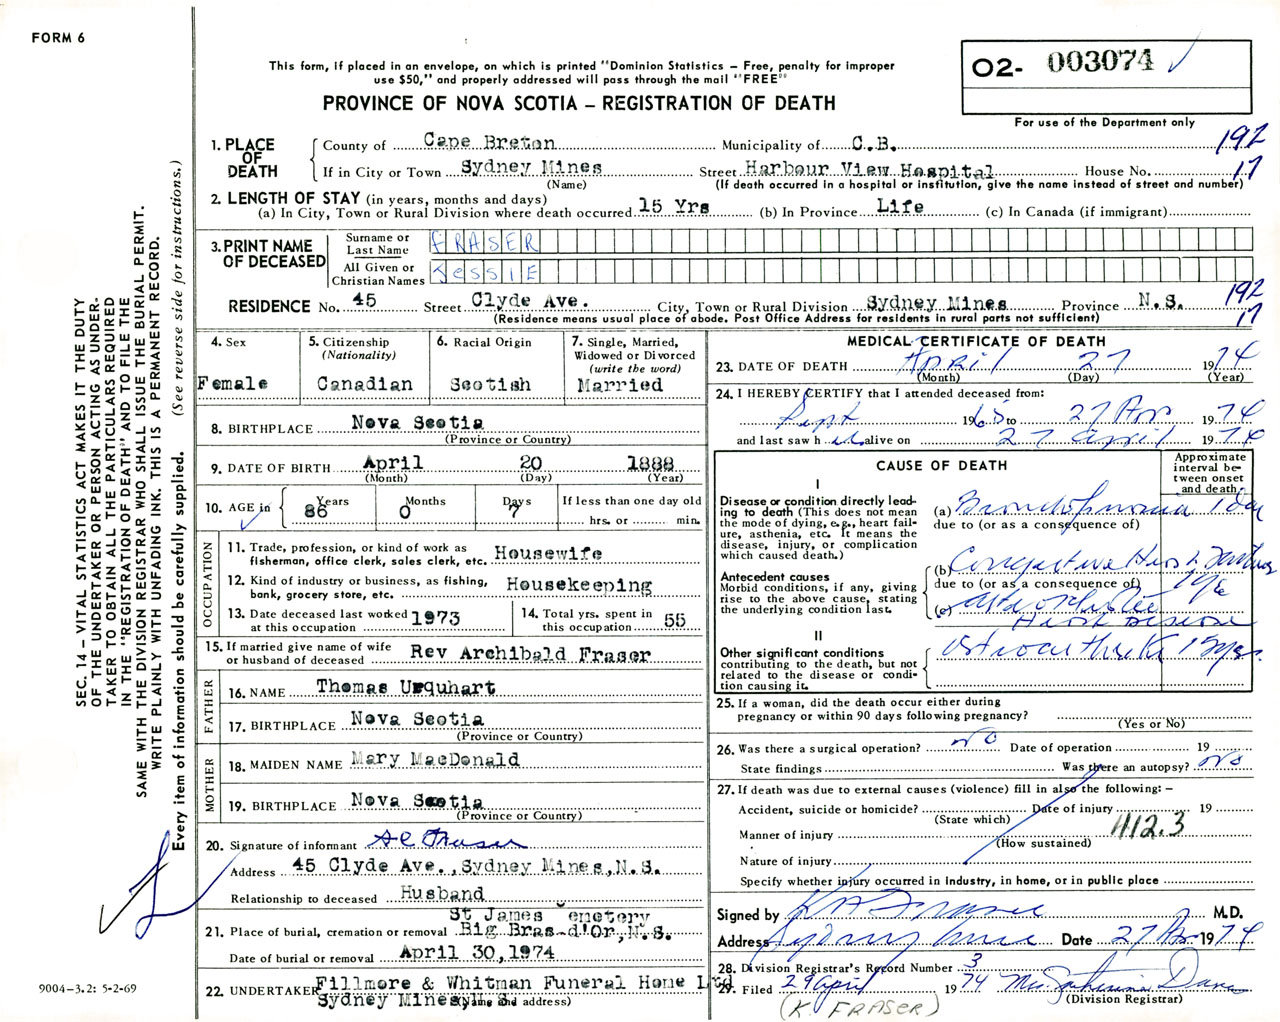 FORM 6
This form, if placed in an envelope, on which is printed "Dominion Statistics – Free, penalty for improper
use $50," and properly addressed will pass through the mail "FREE"
PROVINCE OF NOVA SCOTIA – REGISTRATION OF DEATH
O2- 003074
For use of the Department only
SEC. 14 – VITAL STATISTICS ACT MAKES IT THE DUTY
OF THE UNDERTAKER OR PERSON ACTING AS UNDER-
TAKER TO OBTAIN ALL THE PARTICULARS REQUIRED
IN THE "REGISTRATION OF DEATH" AND TO FILE THE
SAME WITH THE DIVISION REGISTRAR WHO SHALL ISSUE THE BURIAL PERMIT.
WRITE PLAINLY WITH UNFADING INK. THIS IS A PERMANENT RECORD.
Every item of information should be carefully supplied. (See reverse side for instructions.)
1. PLACE OF DEATH
County of Cape Breton Municipality of C.B. 192
If in City or Town Sydney Mines Street Harbour View Hospital House No. 17
(Name) (If death occurred in a hospital or institution, give the name instead of street and number)
2. LENGTH OF STAY (in years, months and days)
(a) In City, Town or Rural Division where death occurred 15 Yrs (b) In Province Life (c) In Canada (if immigrant)
3. PRINT NAME OF DECEASED
Surname or Last Name FRASER
All Given or Christian Names JESSIE
RESIDENCE No. 45 Street Clyde Ave. City, Town or Rural Division Sydney Mines Province N.S. 192
(Residence means usual place of abode. Post Office Address for residents in rural parts not sufficient) 17
4. Sex
Female
5. Citizenship
(Nationality)
Canadian
6. Racial Origin
Scotish
7. Single, Married,
Widowed or Divorced
(write the word)
Married
8. BIRTHPLACE Nova Scotia
(Province or Country)
9. DATE OF BIRTH April 20 1888
(Month) (Day) (Year)
10. AGE in Years Months Days If less than one day old
86 0 7 hrs. or min.
OCCUPATION
11. Trade, profession, or kind of work as
fisherman, office clerk, sales clerk, etc. Housewife
12. Kind of industry or business, as fishing,
bank, grocery store, etc. Housekeeping
13. Date deceased last worked
at this occupation 1973
14. Total yrs. spent in
this occupation 55
15. If married give name of wife
or husband of deceased Rev Archibald Fraser
FATHER
16. NAME Thomas Urquhart
17. BIRTHPLACE Nova Scotia
(Province or Country)
MOTHER
18. MAIDEN NAME Mary MacDonald
19. BIRTHPLACE Nova Scotia
(Province or Country)
20. Signature of informant A C Fraser
Address 45 Clyde Ave., Sydney Mines, N.S.
Relationship to deceased Husband
St James emetery
21. Place of burial, cremation or removal Big Bras-d'Or, N.S.
Date of burial or removal April 30, 1974
22. UNDERTAKER Fillmore & Whitman Funeral Home Ltd
Sydney Mines, N.S.
(Name and address)
9004-3.2: 5-2-69
MEDICAL CERTIFICATE OF DEATH
23. DATE OF DEATH April 27 1974
(Month) (Day) (Year)
24. I HEREBY CERTIFY that I attended deceased from:
Sept 1965 to 27 Apr 1974
and last saw h alive on 27 april 1974
CAUSE OF DEATH
Approximate
interval be-
tween onset
and death
I
Disease or condition directly lead-
ing to death (This does not
mean the mode of dying, e.g., heart fail-
ure, asthenia, etc. It means the
disease, injury, or complication
which caused death.)
(a) Bronchopneumonia 1 day
due to (or as a consequence of)
Antecedent causes
Morbid conditions, if any, giving
rise to the above cause, stating
the underlying condition last.
(b) Congestive Heart
due to (or as a consequence of)
(c)
Heart Disease
II
Other significant conditions
contributing to the death, but not
related to the disease or condi-
tion causing it.
15 yrs.
25. If a woman, did the death occur either during
pregnancy or within 90 days following pregnancy?
(Yes or No)
26. Was there a surgical operation? no Date of operation 19
State findings Was there an autopsy? no
27. If death was due to external causes (violence) fill in also the following: –
Accident, suicide or homicide? Date of injury 19
(State which)
Manner of injury 412.3
(How sustained)
Nature of injury
Specify whether injury occurred in industry, in home, or in public place
Signed by K A Fraser M.D.
Address Sydney Mines Date 27 Apr 1974
28. Division Registrar's Record Number 3
29. Filed 29 april 1974 Mrs. Davis
(Division Registrar)
(K. FRASER)